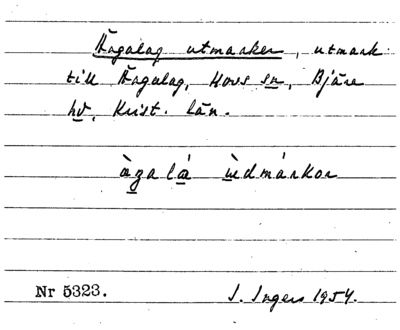 Ängalag utmarker, utmark
till Ängalag, Hovs sn, Bjäre
hd, Krist. län.
àgalá ùdmárkor
Nr 5323.
I. Ingers 1954.